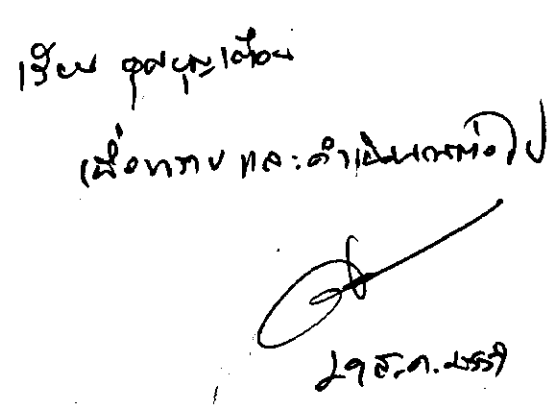 เรียน คุณบุญเตือน
เพื่อทราบ และดำเนินการต่อไป
29 ส.ค. 2557